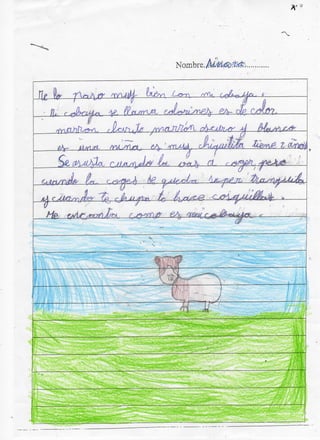 Nombre. Ainara
Me lo paso muy bien con mi cobaya.
Mi cobaya se llama colorines es de color
marrón clarito, marrón oscuro y blanco
es una niña, es muy chiquitita tiene 2 años.
Se asusta cuando la vas a coger pero
cuando la coges se queda super tranquila
y cuando te chupa te hace cosquillas.
Me encanta como es mi cobaya.